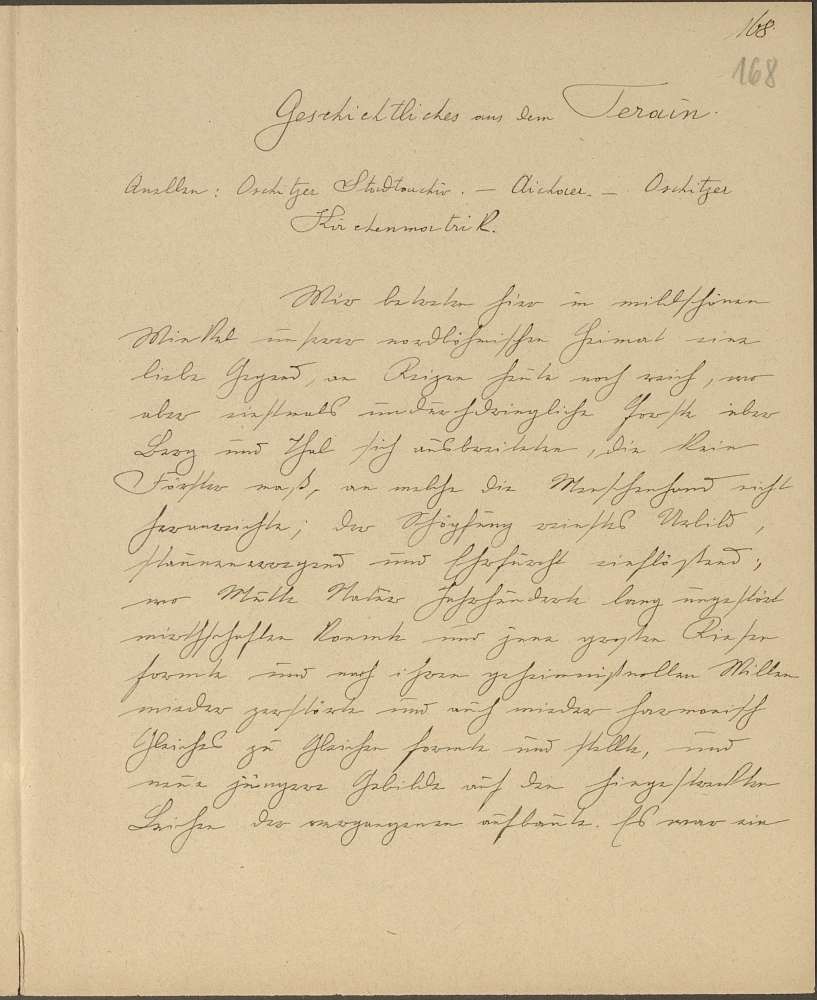 168.
168
Geschichtliches aus dem Terain.
Quellen: Oschitzer Stadtarchiv. — Aichorer. — Oschitzer
Kirchenmatrik.
Wir betreten hier in wildschönen
Winkel unserer nordböhmischen Heimat eine
liebe Gegend, an Reizen heute noch reich, wo
aber einstmals undurchdringliche Forste über
Berg und Thal sich ausbreiteten, die kein
Förster maß, an welche die Menschenhand nicht
heranreichte; der Schöpfung reinstes Urbild,
staunenerregend und Ehrfurcht einflößend;
wo Mutter Natur Jahrhunderte lang ungestört
wirthschaften konnte und jene großen Riesen
formte und nach ihren geheimnißvollen Willen
wieder zerstörte und auch wieder harmonisch
Gleiches zu Gleichen formte und stellte, und
neue jüngere Gebilde auf den hingestreckten
Leichen der vergangenen aufbaute. Es war ein